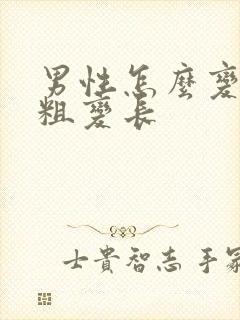 男性怎麼變
粗變長
士貴智志 手冢